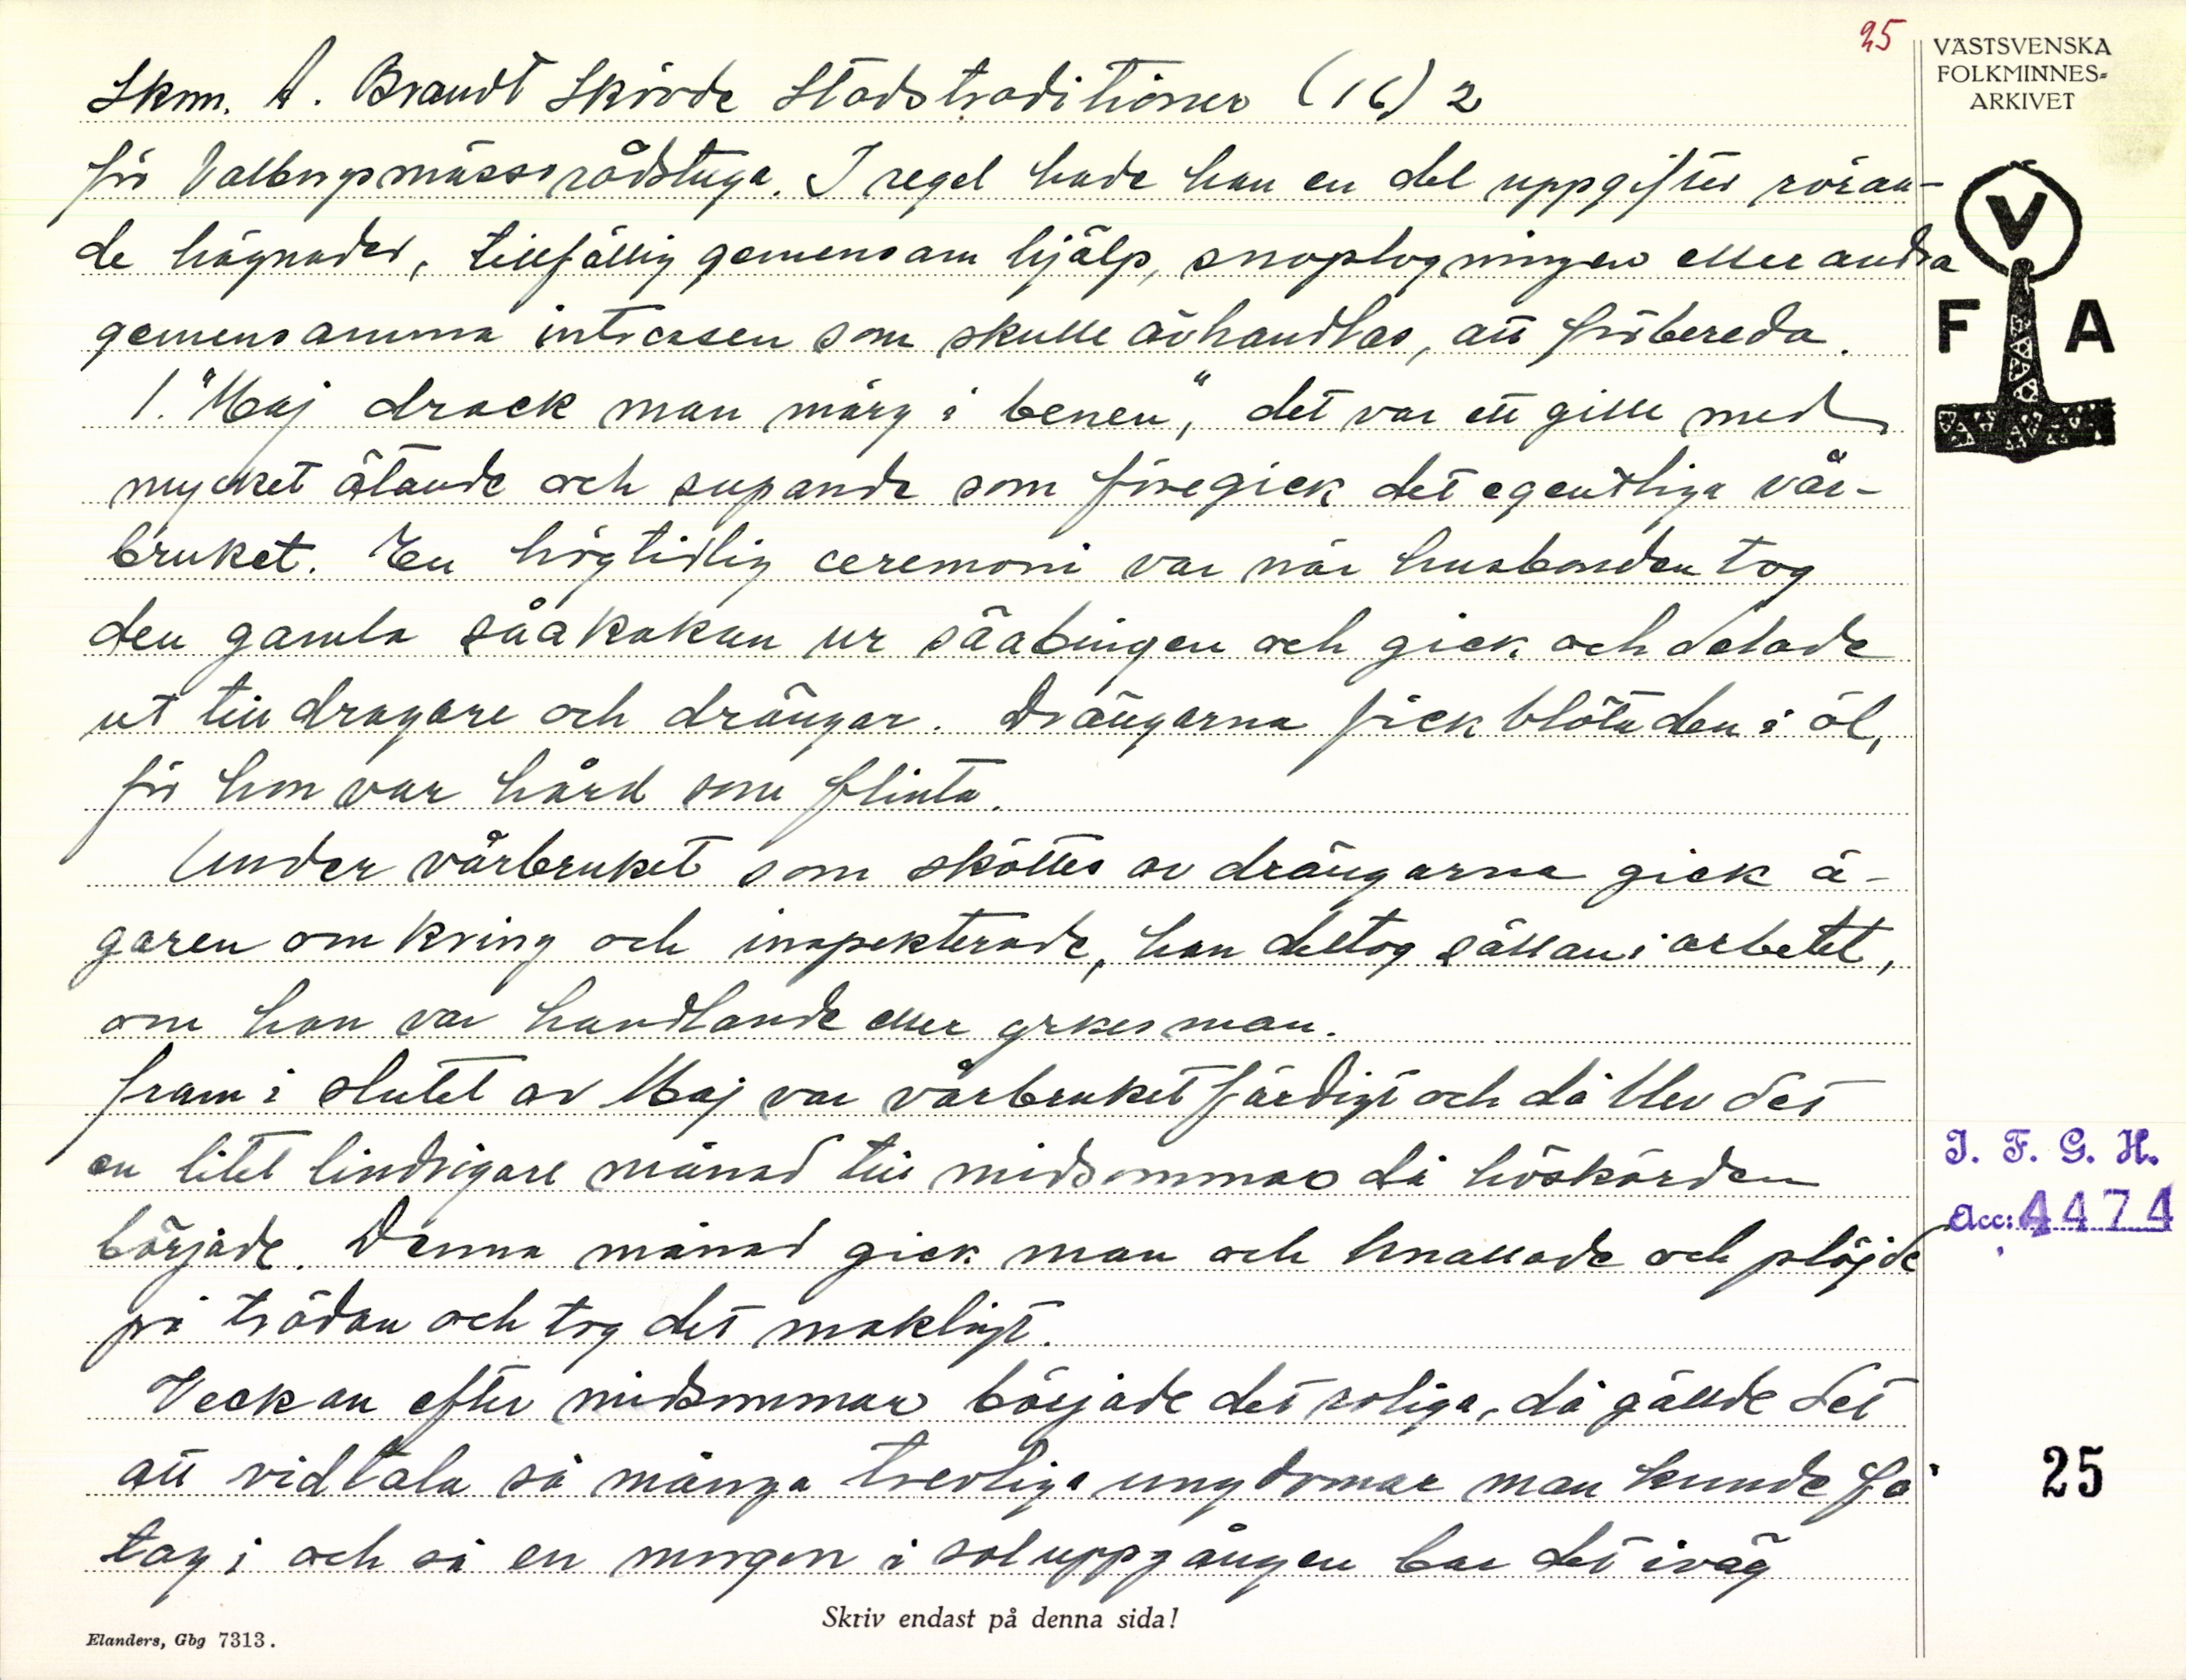 25
VÄSTSVENSKA
FOLKMINNES-
ARKIVET
Skm. A. Brandt Skövde Stadstraditioner (16) 2
för Valborgsmässorådstuga. I regel hade han en del uppgifter röran-
de hägnader, tillfällig gemensam hjälp, snöplogningen eller andra
gemensamma intressen som skulle avhandlas, att förbereda.
1. "Maj drack man märg i benen", det var ett gille med
mycket ätande och supande som föregick det egentliga vår-
bruket. En högtidlig ceremoni var när husbonden tog
den gamla såakakan ur säabingen och gick och delade
ut till dragare och drängar. Drängarna fick blöta den i öl,
för hon var hård som flinta.
Under vårbruket som sköttes av drängarna gick ä-
garen omkring och inspekterade, han deltog sällan i arbetet,
om han var handlande eller yrkesman.
fram i slutet av Maj var vårbruket färdigt och då blev det
en litet lindrigare månad till midsommar då höskörden
började. Denna månad gick man och knallade och plöjde
på trädan och tog det makligt.
Veckan efter midsommar började det roliga, då gällde det
att vidtala så många trevliga ungdomar man kunde få
tag i och så en morgon i soluppgången bar det iväg
V
F A
I. F. G. H.
Acc: 4474
25
Skriv endast på denna sida!
Elanders, Gbg 7313.